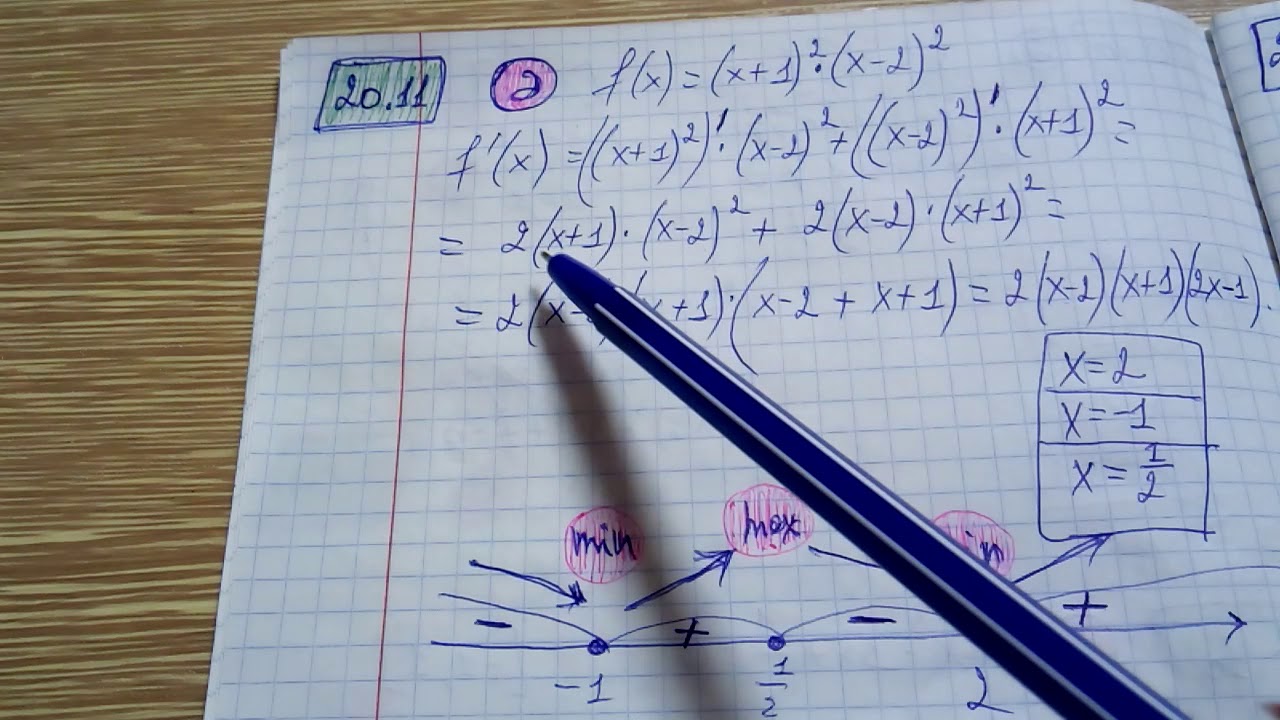 20.11 a f(x) = (x+1)²·(x-2)²
f'(x) = ((x+1)²)'·(x-2)² + ((x-2)²)'·(x+1)² =
= 2(x+1)·(x-2)² + 2(x-2)·(x+1)² =
= 2(x- x+1)·(x-2 + x+1) = 2(x-2)(x+1)(2x-1).
x=2
x=-1
x = 1/2
min max
- + - +
-1 1/2 2